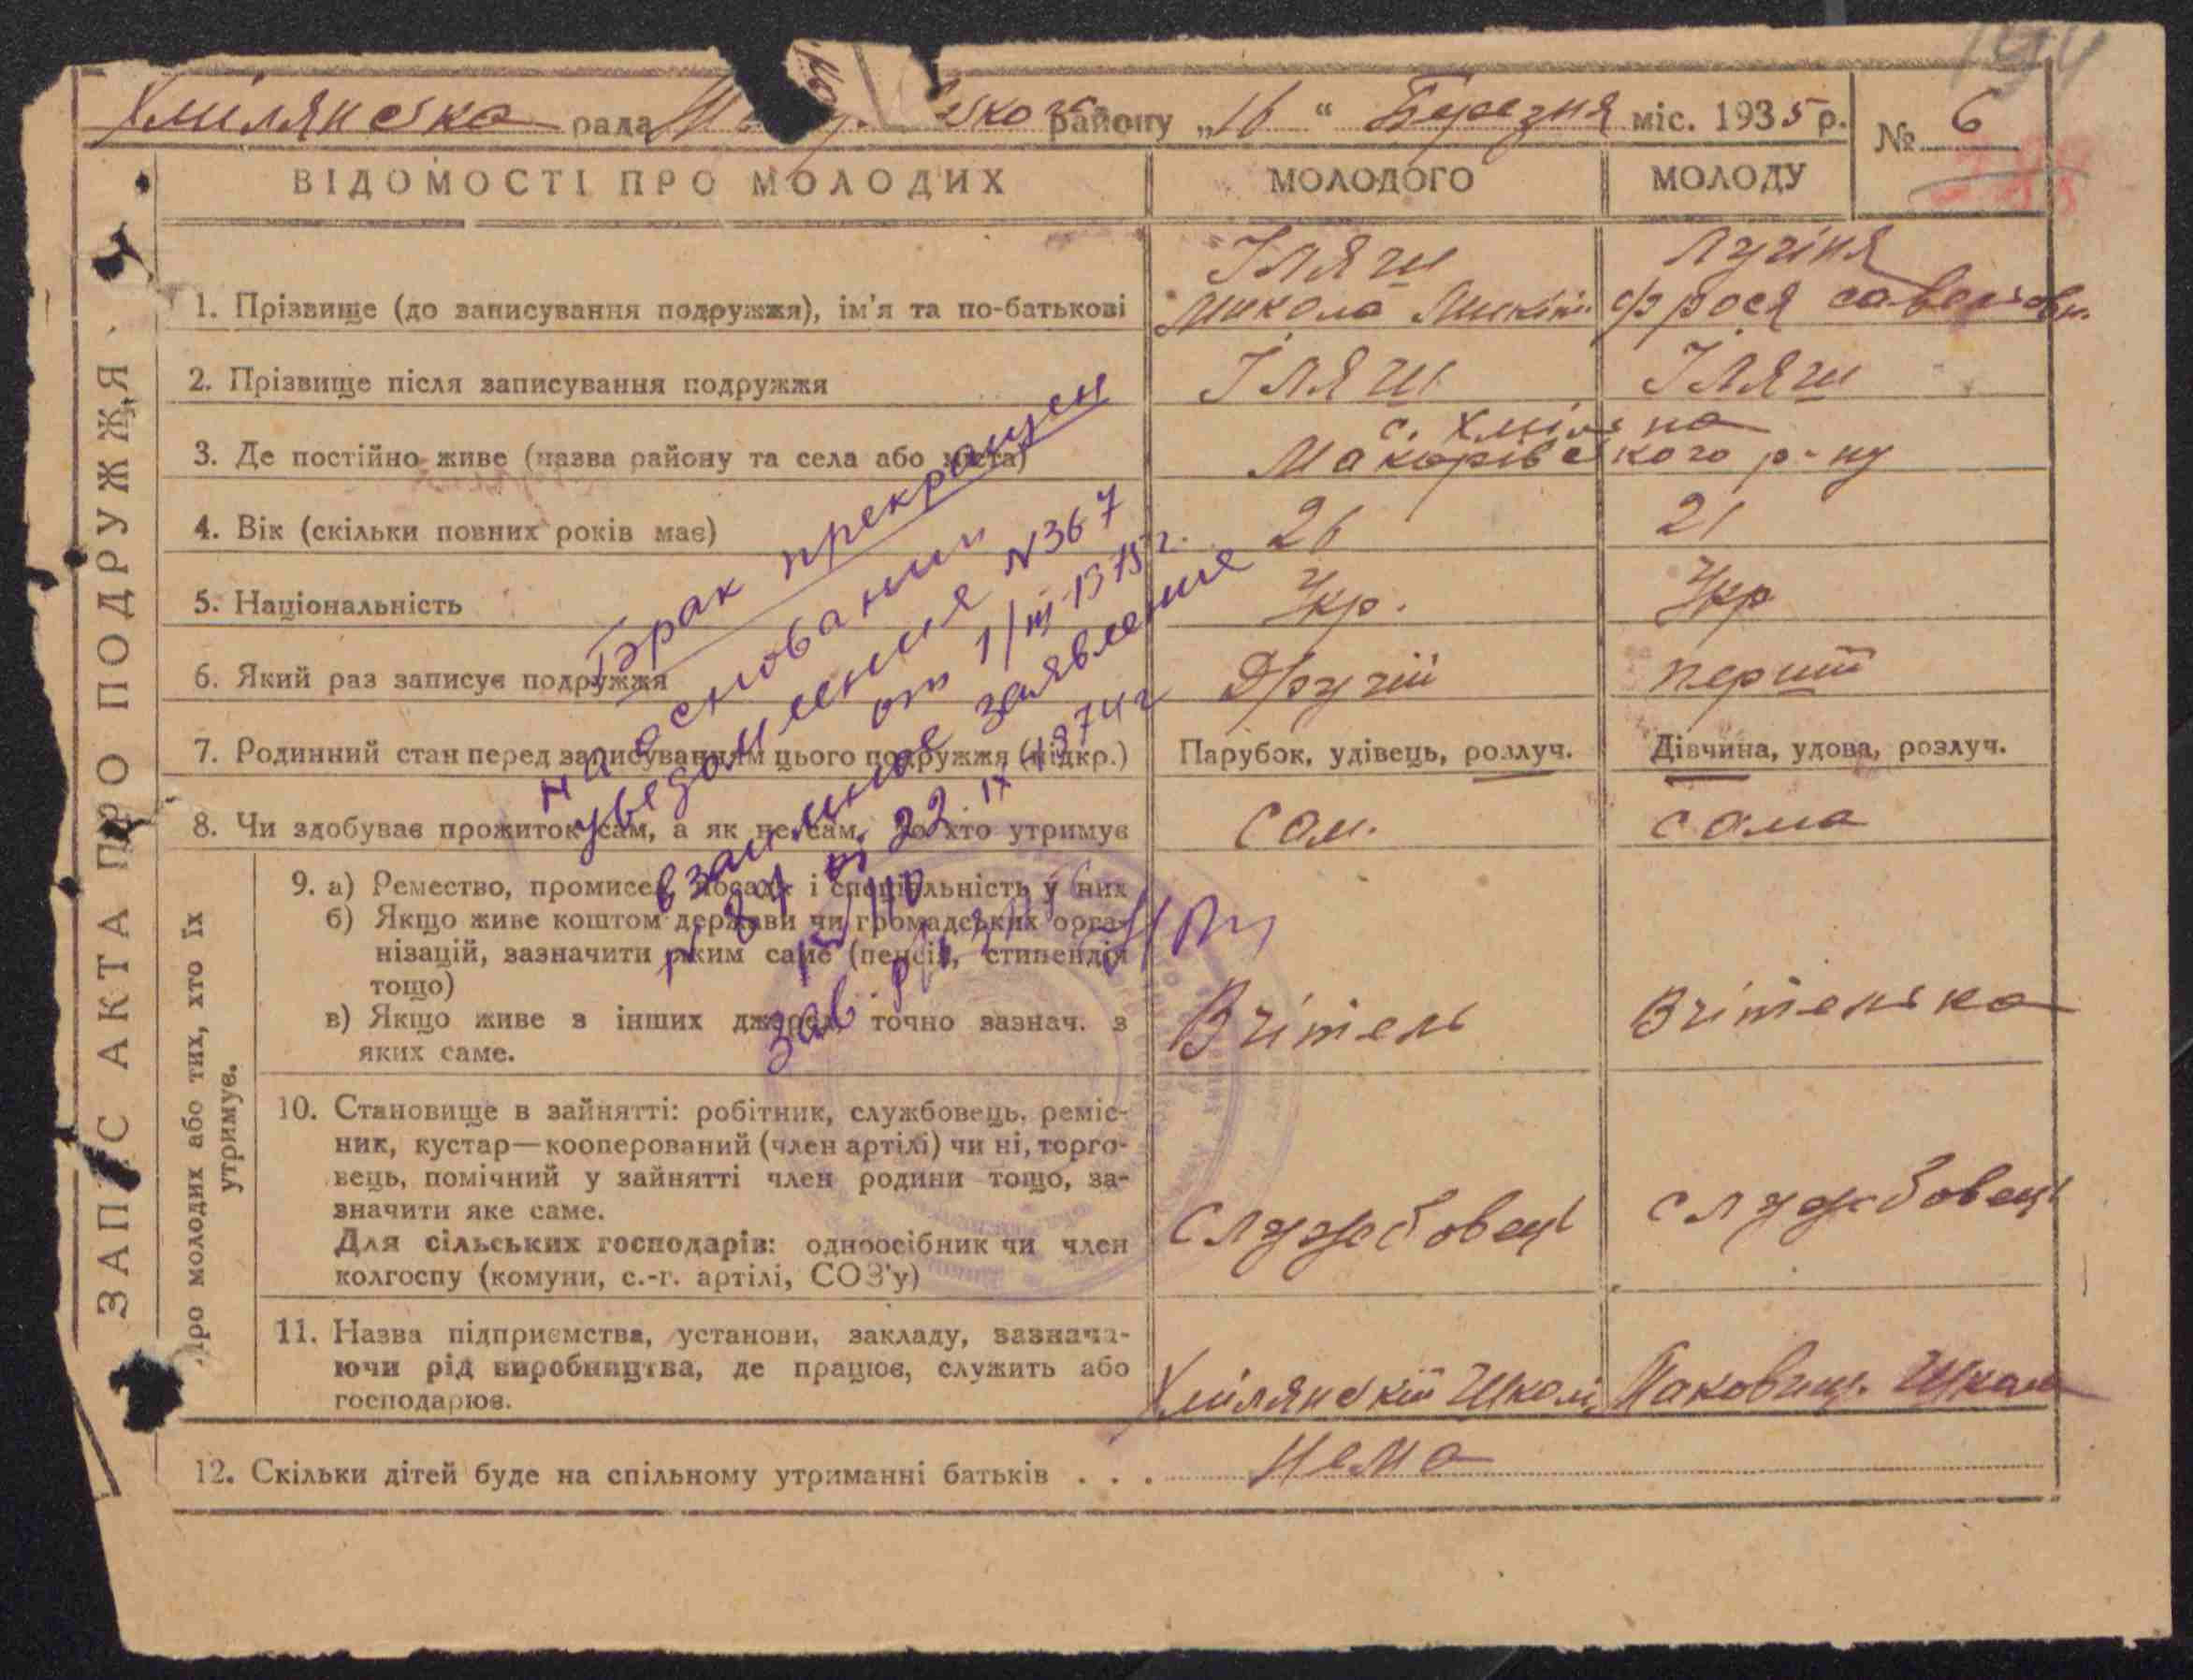 194
Хмілянська рада району „16“ Березня міс. 1935 р. № 6
ВІДОМОСТІ ПРО МОЛОДИХ МОЛОДОГО МОЛОДУ
ЗАПИС АКТА ПРО ПОДРУЖЖЯ
Іляш
Микола
1. Прізвище (до записування подружжя), ім'я та по-батькові
2. Прізвище після записування подружжя Іляш Іляш
с. Хміляна
3. Де постійно живе (назва району та села або міста) Макарівського р-ну
4. Вік (скільки повних років має) 26 21
5. Національність Укр. Укр
6. Який раз записує подружжя Другій перший
7. Родинний стан перед записуванням цього подружжя (підкр.) Парубок, удівець, розлуч. Дівчина, удова, розлуч.
8. Чи здобуває прожиток сам, а як не сам, то хто утримує Сам. сама
Про молодих або тих, хто їх
утримує.
9. а) Ремество, промисел, посада і спеціальність у них
б) Якщо живе коштом держави чи громадських орга-
нізацій, зазначити яким саме (пенсія, стипендія
тощо)
в) Якщо живе з інших джерел, точно зазнач. з
яких саме.
Вчітель Вчітелька
10. Становище в зайнятті: робітник, службовець, реміс-
ник, кустар—кооперований (член артілі) чи ні, торго-
вець, помічний у зайнятті член родини тощо, за-
значити яке саме.
Для сільських господарів: одноосібник чи член
колгоспу (комуни, с.-г. артілі, СОЗ'у)
Службовець службовець
11. Назва підприємства, установи, закладу, зазнача-
ючи рід виробництва, де працює, служить або
господарює.
Хмілянскій Школі Маковищ. Школа
12. Скільки дітей буде на спільному утриманні батьків . . . нема
Брак прекращен
на основании
уведомления N 367
от 1/III-1975 г.
взаимное заявление
N 84 от 22.IX 1974 г
зав.